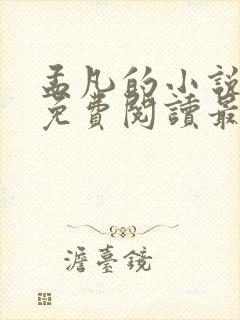 孟凡的小說
免費閱讀最
澹臺鏡